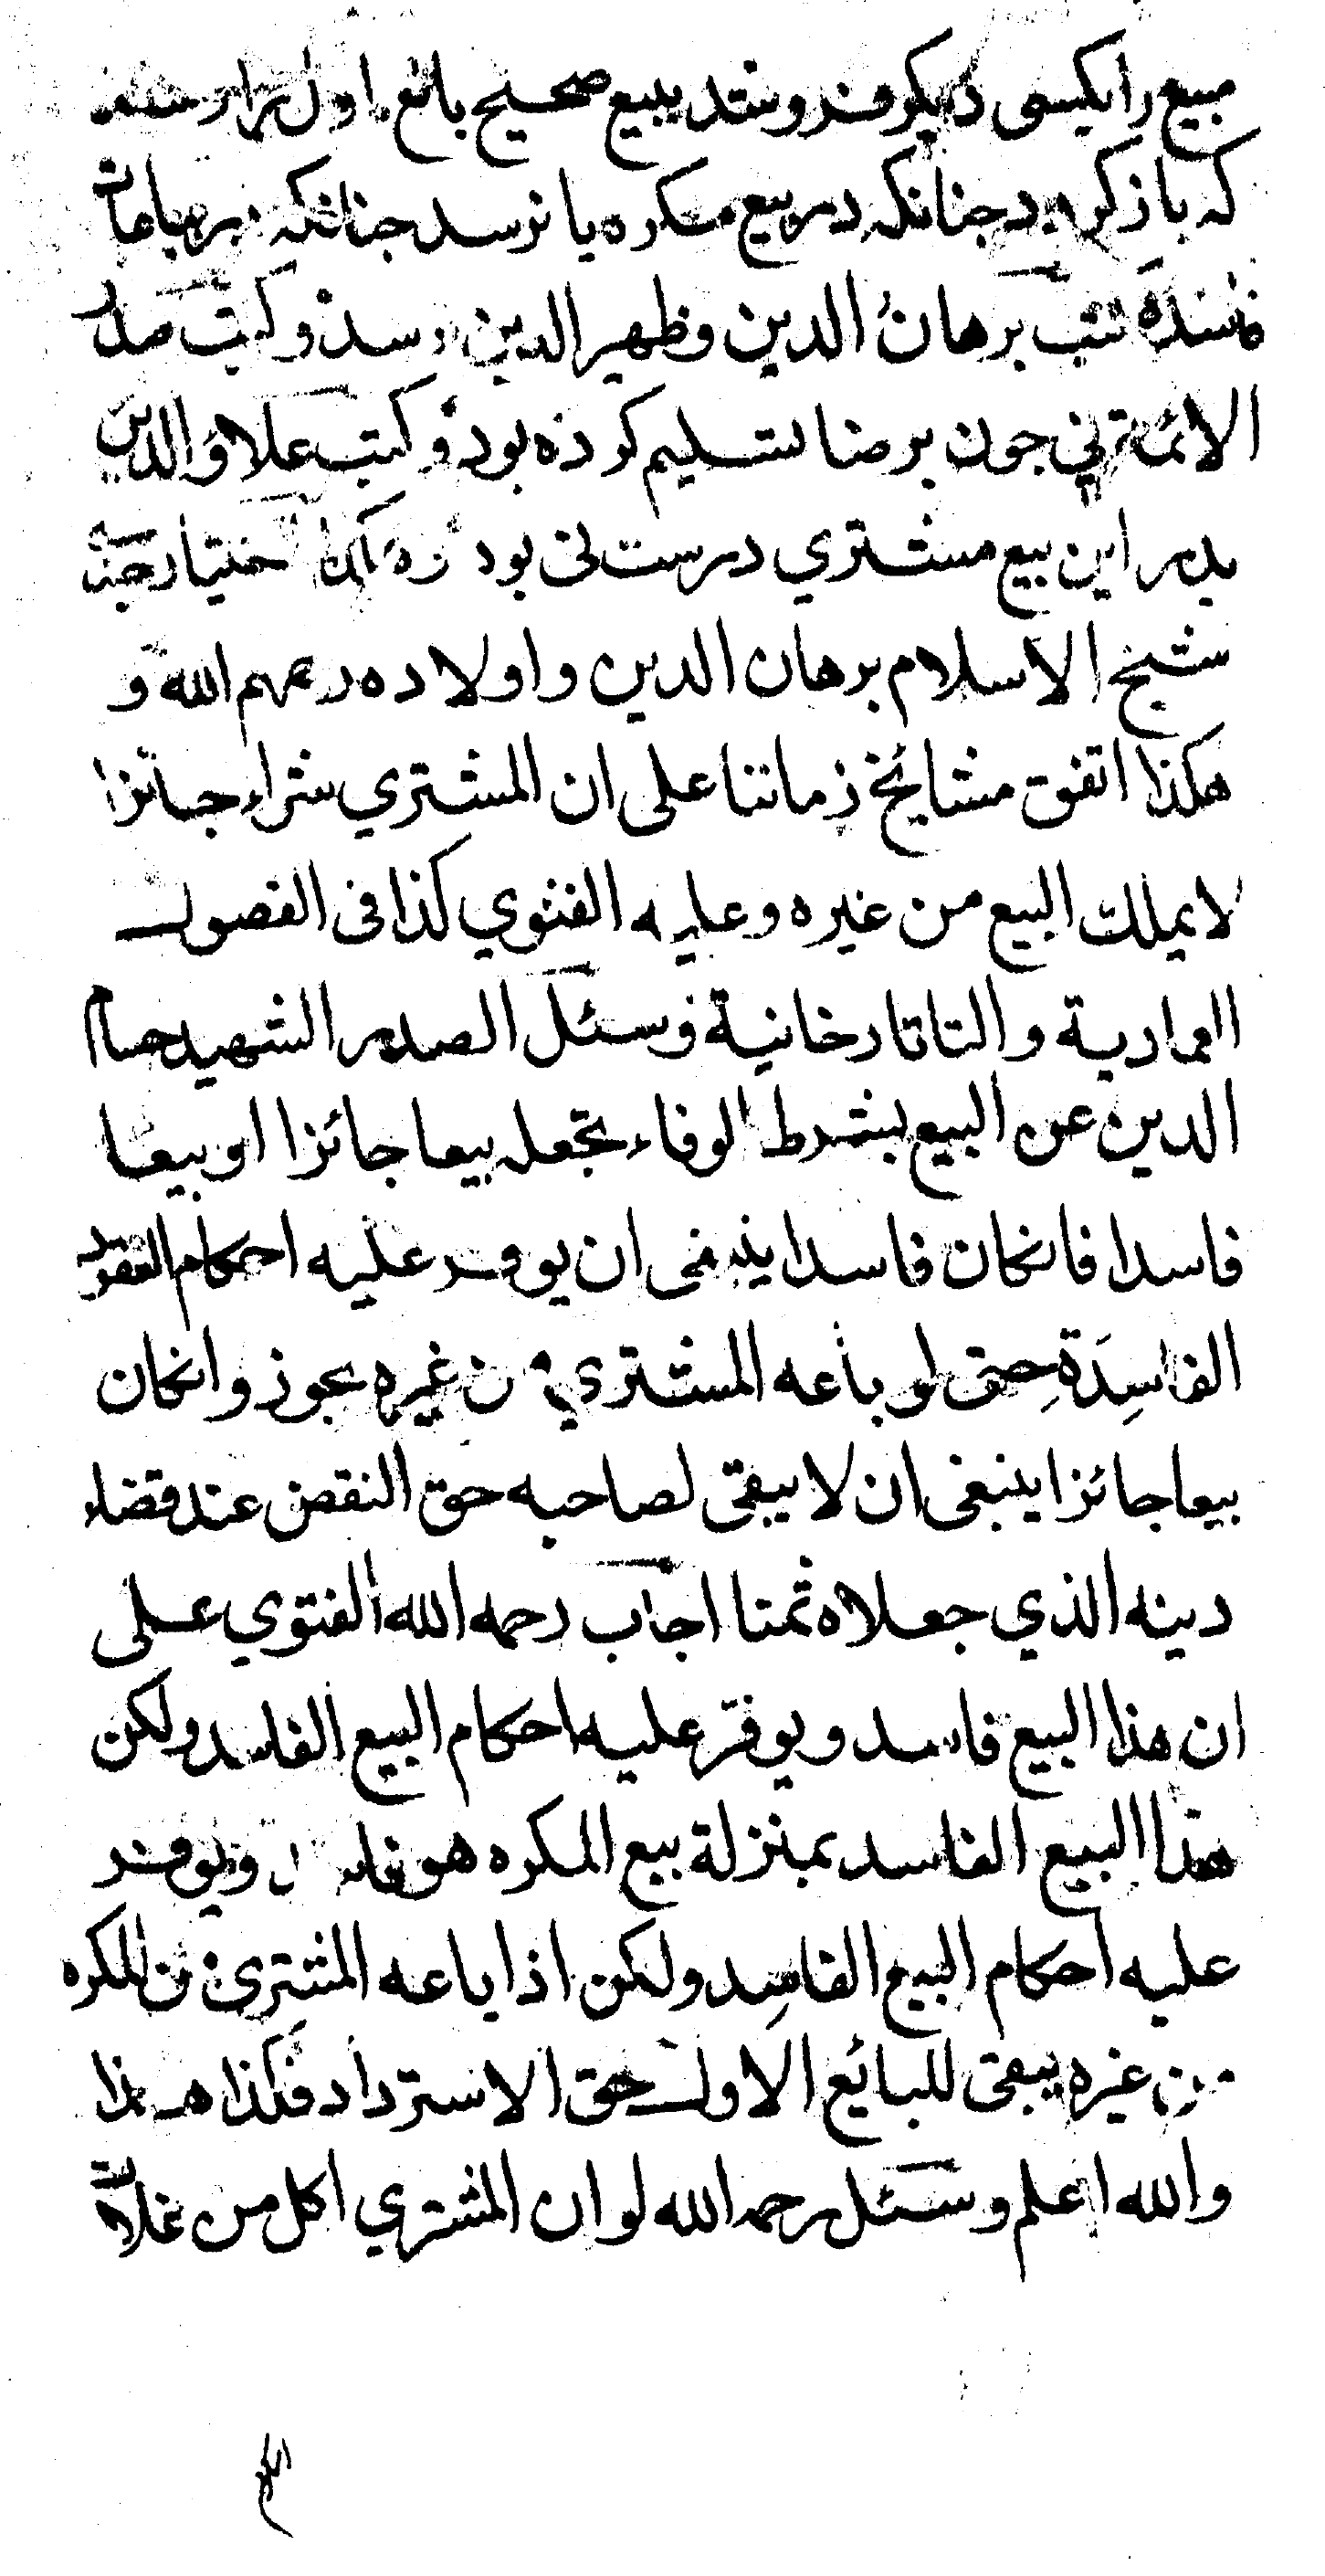 مبيع را بكسى ديكر فروشد ببيع صحيح بائع اول را رسد
كه باز كيرد جنانكه در بيع مكره يا نرسد جنانكه در بياعات
فاسده كتب برهان الدين وظهير الدين رسد وكتب صدر
الائمه نى جون برضا تسليم كرده بود وكتب علاؤ الدين
بدر اين بيع مشتري درست نى بود وهكذا اختيار جد
شيخ الاسلام برهان الدين واولاده رحمهم الله و
هكذا اتفق مشائخ زماننا على ان المشتري شراء جائزا
لا يملك البيع من غيره وعليه الفتوي كذا فى الفصول
العمادية والتاتارخانية وسئل الصدر الشهيد حسام
الدين عن البيع بشرط الوفاء تجعله بيعا جائزا او بيعا
فاسدا فانكان فاسدا ينبغى ان يوفر عليه احكام العقود
الفاسِدَة حتى لو باعه المشتري من غيره يجوز وانكان
بيعا جائزا ينبغى ان لا يبقى لصاحبه حق النقض عند قضاء
دينه الذي جعلاه ثمنا اجاب رحمه الله الفتوي على
ان هذا البيع فاسد ويوفر عليه احكام البيع الفاسد ولكن
هذا البيع الفاسد بمنزلة بيع المكره هو فاسد ويوفر
عليه احكام البيع الفاسِد ولكن اذا باعه المشترى من المكره
من غيره يبقى للبائع الاول حق الاسترداد فكذا هذا
والله اعلم وسئل رحمه الله لو ان المشتري اكل من غلة